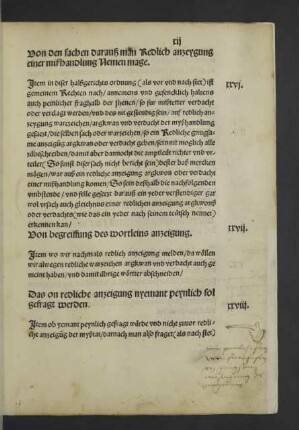 xij
Von den sachen darauß man Redlich anzeygung
einer mißhandlung Nemen mage.
Item in diser halßgerichts ordnung (als vor vnd nach stet) ist
xxvj.
gemeinem Rechten nach, annemens vnd gefencklich haltens
auch peinlicher fraghalb der jhenen, so für mißtetter verdacht
oder verclagt werden, vnd des nit gestendig sein, auf redlich an
zeygung warzeichen, argkwan vnd verdacht der myßhandlung
gesatzt, die selben sach oder warzeichen, so ein Redliche gnugsame
anzeigung argkwan oder verdacht geben, sein nit moglich alle
zubeschreiben, damit aber dannocht die amptleüt richter vnd
vrteiler
nicht bericht sein, dester baß mercken
mügen, war auß ein redlich anzeigung argkwan oder verdacht
einer mißhandlung komen, So sein deßhalb die nachfolgenden
gesetzt darauß ein yeder verstendiger gar
wol vrsach auch gleichnus einer redlichen anzeigung argkwons
oder verdachts (wie das ein yeder nach seinem teütsch nennet)
erkennen kan
Von begreiffung des wortleins anzeigung.
xxvij.
Item wo wir nachmals redlich anzeigung melden, da wöllen
wir alwegen redliche warzeichen argkwan vnd verdacht auch ge
meint haben, vnd damit übrige wörter abschneyden,
Das on redliche anzeigung nyemant peynlich sol
gefragt werden.
xxviij.
Item ob yemant peynlich gefragt würde vnd nicht zuuor redli-
che anzeigūg der mysstat, darnach man also fraget, (als nach stet)